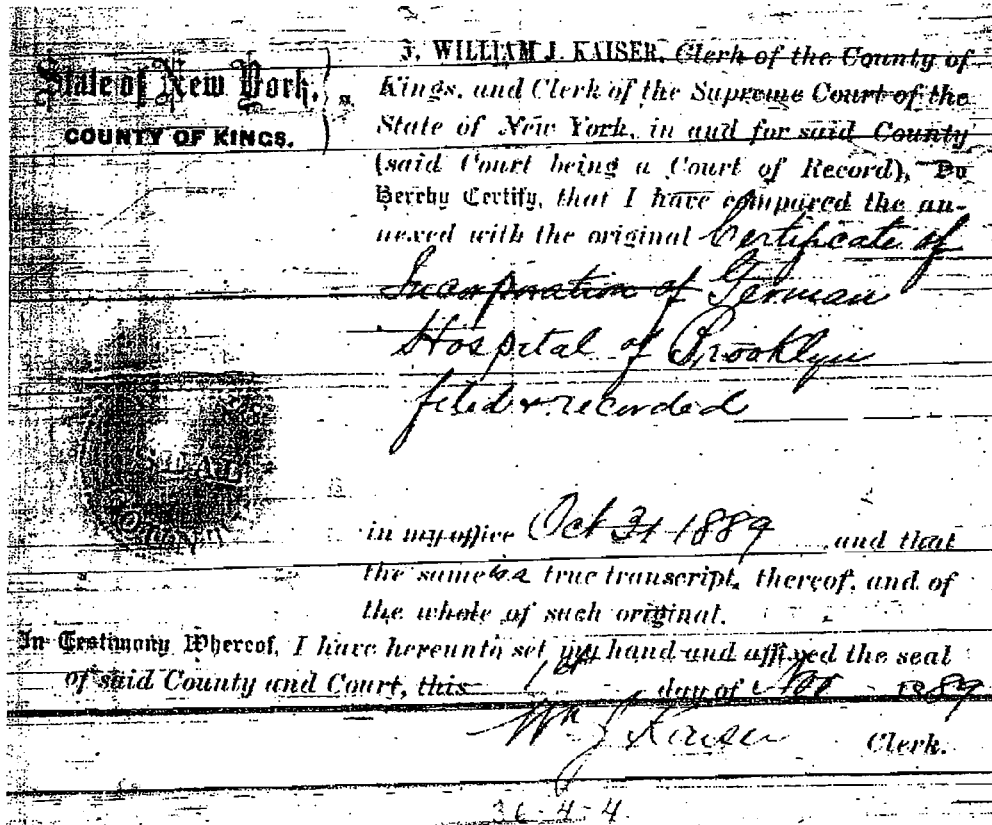 State of New York,
COUNTY OF KINGS.
ss.
I, WILLIAM J. KAISER, Clerk of the County of
Kings, and Clerk of the Supreme Court of the
State of New York, in and for said County
(said Court being a Court of Record), Do
Hereby Certify, that I have compared the an-
nexed with the original Certificate of
Incorporation of German
Hospital of Brooklyn
filed & recorded
SEAL
in my office Oct 31 1889 and that
the same is a true transcript, thereof, and of
the whole of such original.
In Testimony Whereof, I have hereunto set my hand and affixed the seal
of said County and Court, this 1st day of Nov 1889
Wm J Kaiser Clerk.
36-4-4